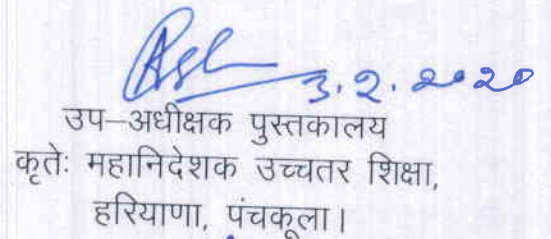 3.2.2020
उप–अधीक्षक पुस्तकालय
कृते: महानिदेशक उच्चतर शिक्षा,
हरियाणा, पंचकूला।